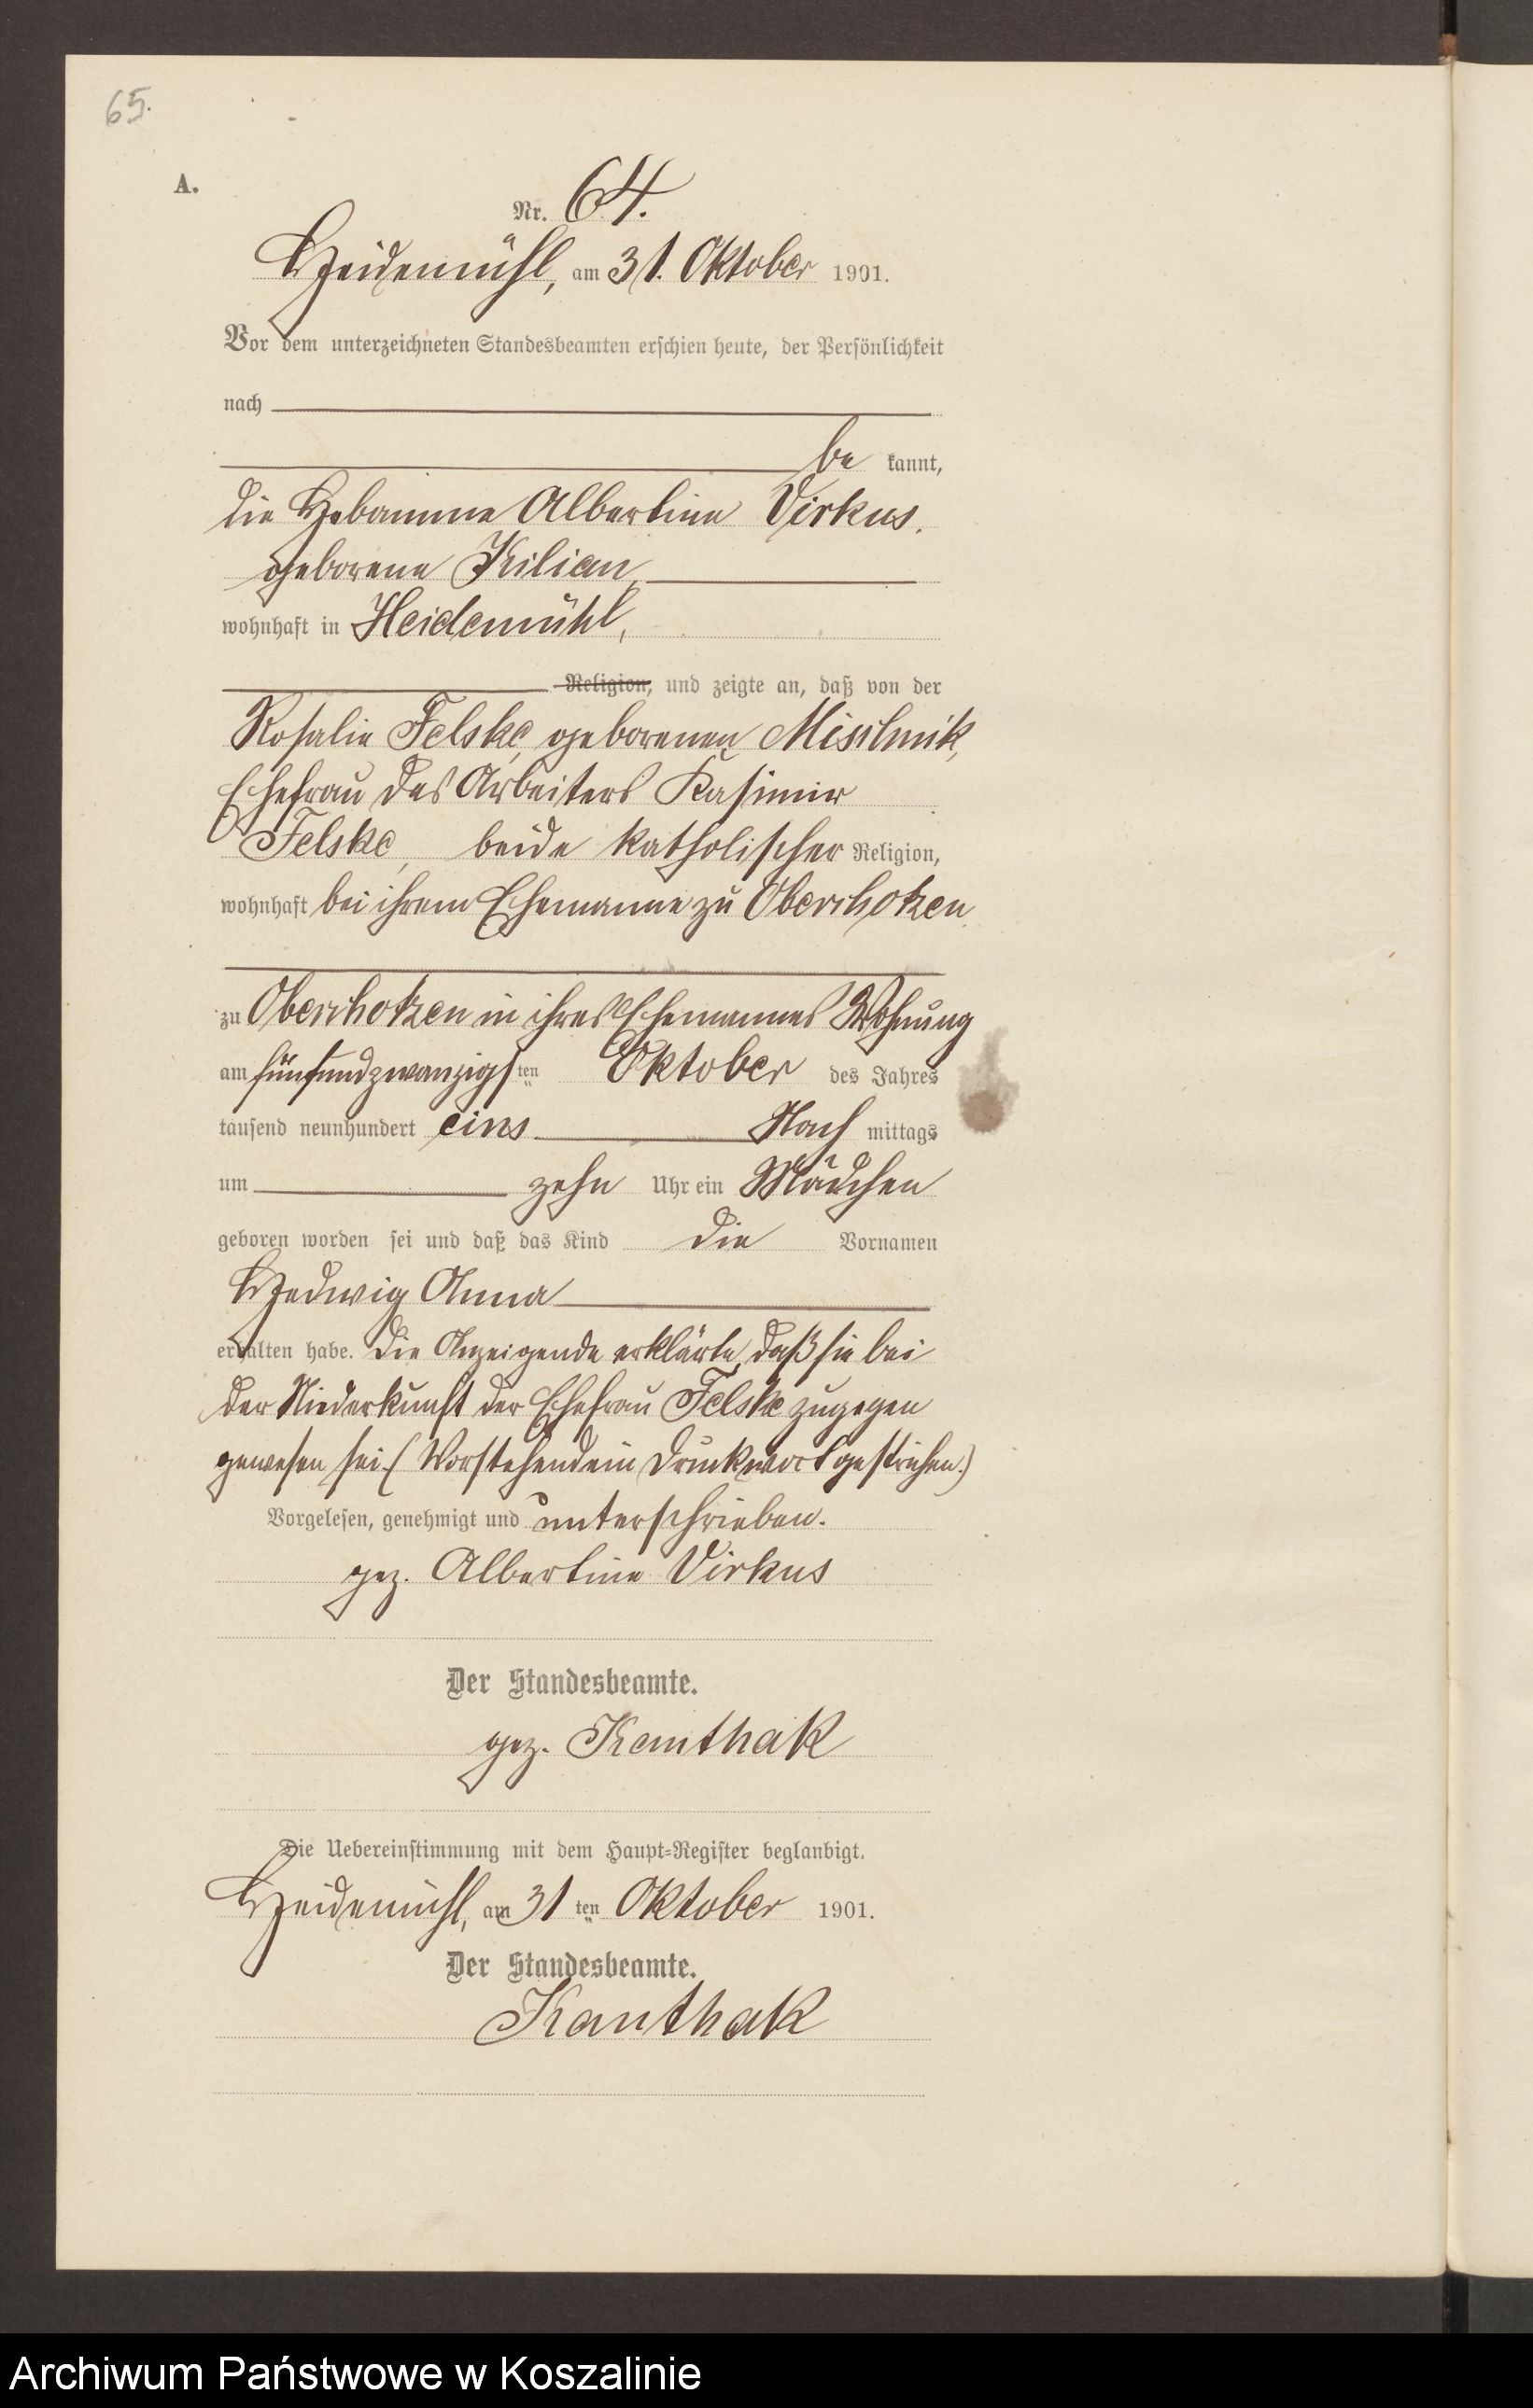 65.
A.
Nr. 64.
Heidemühl, am 31. Oktober 1901.
Vor dem unterzeichneten Standesbeamten erschien heute, der Persönlichkeit
nach
be kannt,
die Hebamme Albertine Virkus,
geborene Kilian,
wohnhaft in Heidemühl,
Religion, und zeigte an, daß von der
Rosalie Felske, geborenen Mischnik,
Ehefrau des Arbeiters Kasimir
Felske, beide katholischer Religion,
wohnhaft bei ihrem Ehemanne zu Oberchotzen
zu Oberchotzen in ihres Ehemannes Wohnung
am fünfundzwanzigsten Oktober des Jahres
tausend neunhundert eins Nach mittags
um zehn Uhr ein Mädchen
geboren worden sei und daß das Kind die Vornamen
Hedwig Anna
erhalten habe. Die Anzeigende erklärte, daß sie bei
der Niederkunft der Ehefrau Felske zugegen
gewesen sei. (Vorstehend ein Druckwort gestrichen.)
Vorgelesen, genehmigt und unterschrieben.
gez. Albertine Virkus
Der Standesbeamte.
gez. Kanthak
Die Uebereinstimmung mit dem Haupt-Register beglaubigt.
Heidemühl, am 31 ten Oktober 1901.
Der Standesbeamte.
Kanthak
Archiwum Państwowe w Koszalinie